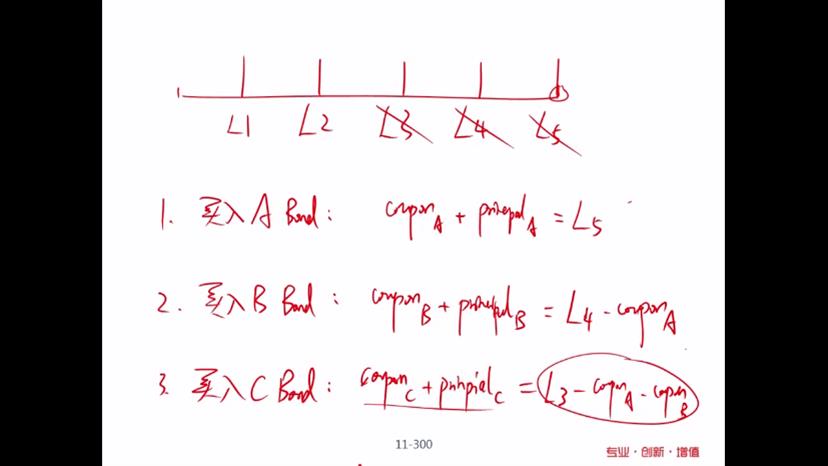 L1 L2 L3 L4 L5
1. 买入 A Bond: coupon_A + principal_A = L5
2. 买入 B Bond: coupon_B + principal_B = L4 - coupon_A
3. 买入 C Bond: coupon_C + principal_C = L3 - coupon_A - coupon_B
11-300
专业·创新·增值